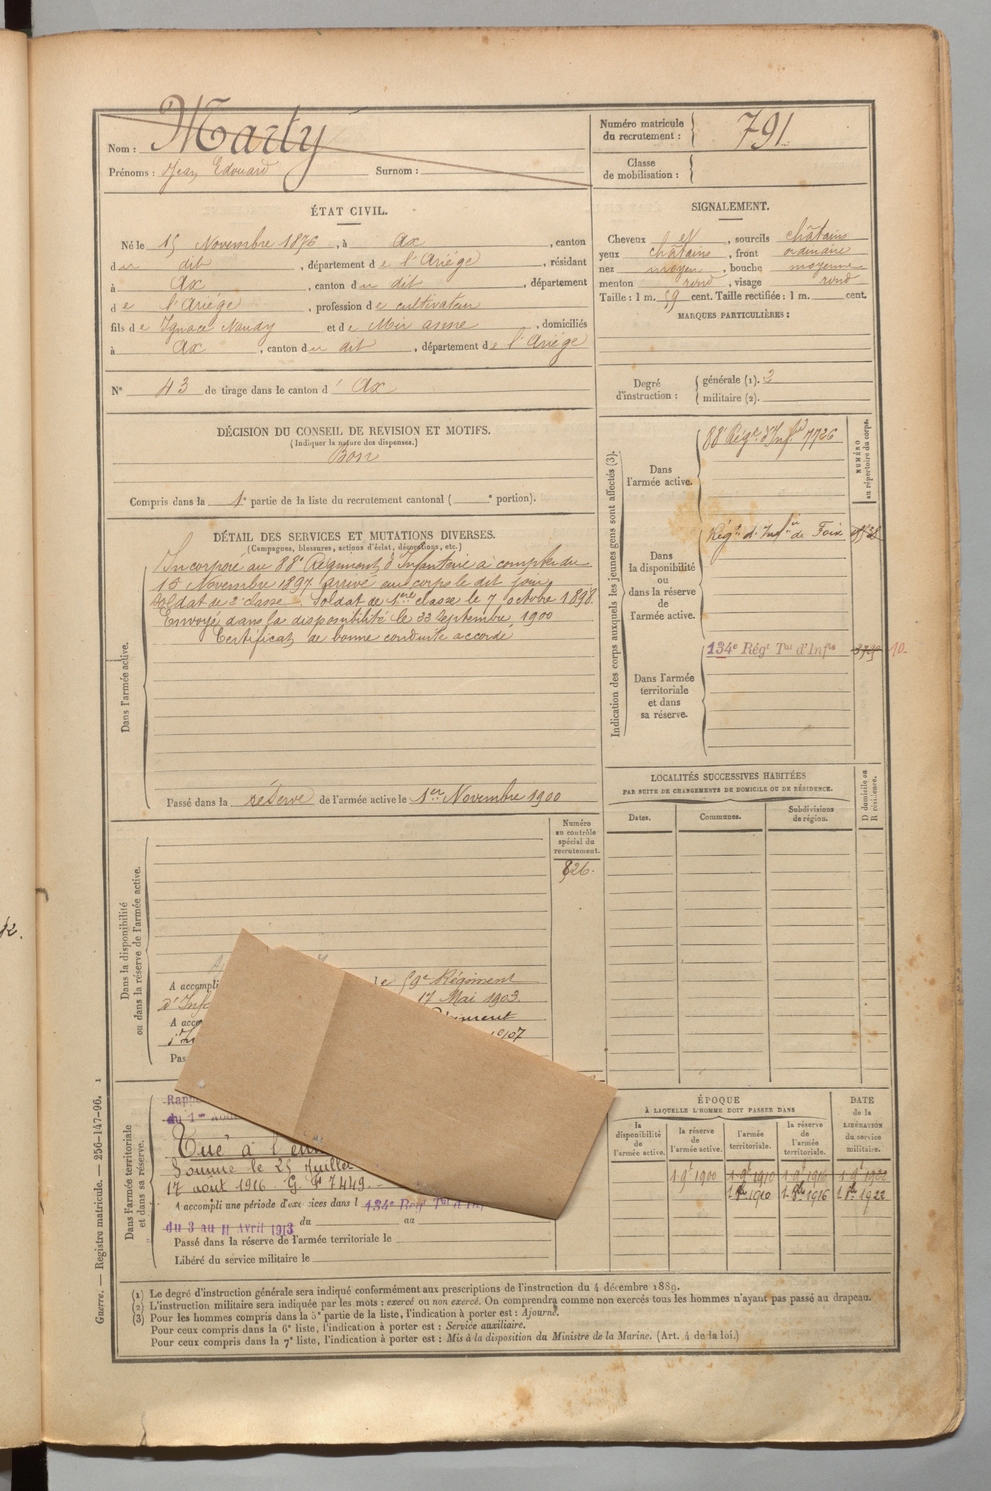 Nom : Marty
Prénoms : Jean Edouard Surnom :
Numéro matricule du recrutement : 791
Classe de mobilisation :
ÉTAT CIVIL.
Né le 15 Novembre 1876, à Ax, canton
du dit, département de l'Ariége, résidant
à Ax, canton du dit, département
de l'Ariége, profession de cultivateur
fils de Ignace Naudy et de Mir anne, domiciliés
à Ax, canton du dit, département de l'Ariége
N° 43 de tirage dans le canton d' Ax
SIGNALEMENT.
Cheveux et, sourcils châtains
yeux châtains, front ordinaire
nez moyen, bouche moyenne
menton rond, visage rond
Taille : 1 m. 59 cent. Taille rectifiée : 1 m. cent.
MARQUES PARTICULIÈRES :
Degré d'instruction : générale (1). 3
militaire (2).
DÉCISION DU CONSEIL DE REVISION ET MOTIFS.
(Indiquer la nature des dispenses.)
Bon
Compris dans la 1e partie de la liste du recrutement cantonal ( e portion).
DÉTAIL DES SERVICES ET MUTATIONS DIVERSES.
(Campagnes, blessures, actions d'éclat, décorations, etc.)
Dans l'armée active.
Incorporé au 88e Régiment d'Infanterie à compter du
15 Novembre 1897. Arrivé au corps le dit jour
Soldat de 2e classe. Soldat de 1ere classe le 7 octobre 1898.
Envoyé dans la disponibilité le 22 septembre 1900
Certificat de bonne conduite accordé
Passé dans la réserve de l'armée active le 1er Novembre 1900
Indication des corps auxquels les jeunes gens sont affectés (3).
NUMÉRO au répertoire du corps.
Dans l'armée active.
88e Régt d'Infie 7726
Dans la disponibilité ou dans la réserve de l'armée active.
Régt d'Infie de Foix
Dans l'armée territoriale et dans sa réserve.
134e Régt Tal d'Infie
LOCALITÉS SUCCESSIVES HABITÉES
PAR SUITE DE CHANGEMENTS DE DOMICILE OU DE RÉSIDENCE.
Dates. Communes. Subdivisions de région.
D domicile ou R résidence.
Dans la disponibilité ou dans la réserve de l'armée active.
Numéro au contrôle spécial du recrutement.
826.
A accompli le 59e Régiment
d'Inf 17 Mai 1903.
A acco Régiment
1907
Pas
Dans l'armée territoriale et dans sa réserve.
Tué à l'
Somme le 25 Juillet
17 août 1916 G. F 7449.
A accompli une période d'exercices dans l 134e Régt Tal d'Inf
du au
du 3 au 11 Avril 1913
Passé dans la réserve de l'armée territoriale le
Libéré du service militaire le
ÉPOQUE
À LAQUELLE L'HOMME DOIT PASSER DANS
la disponibilité de l'armée active.
la réserve de l'armée active.
l'armée territoriale.
la réserve de l'armée territoriale.
DATE de la LIBÉRATION du service militaire.
1 9e 1900 1 9e 1910 1 9e 1916 1 9e 1922
1 8e 1910 1 8e 1916 1 8e 1922
(1) Le degré d'instruction générale sera indiqué conformément aux prescriptions de l'instruction du 4 décembre 1889.
(2) L'instruction militaire sera indiquée par les mots : exercé ou non exercé. On comprendra comme non exercés tous les hommes n'ayant pas passé au drapeau.
(3) Pour les hommes compris dans la 5e partie de la liste, l'indication à porter est : Ajourné.
Pour ceux compris dans la 6e liste, l'indication à porter est : Service auxiliaire.
Pour ceux compris dans la 7e liste, l'indication à porter est : Mis à la disposition du Ministre de la Marine. (Art. 4 de la loi.)
Guerre. — Registre matricule. — 256-147-96. 1